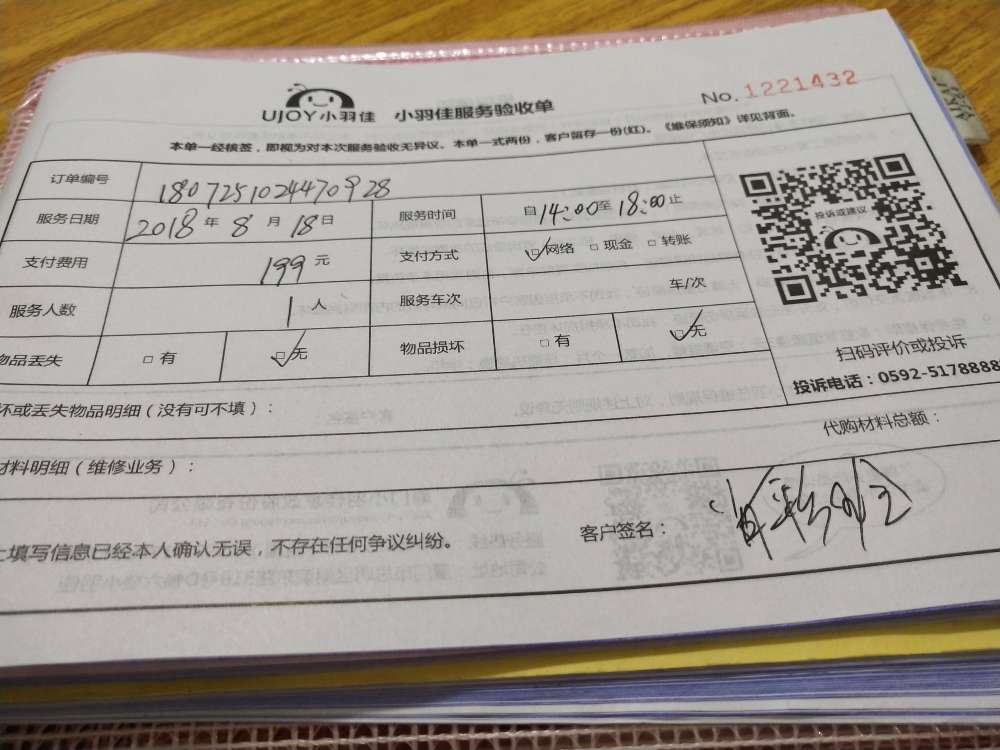 UJOY小羽佳 小羽佳服务验收单 No.1221432
本单一经核签，即视为对本次服务验收无异议。本单一式两份，客户留存一份(红)。《维保须知》详见背面。
订单编号 1807251024470928
服务日期 2018年8月18日 服务时间 自14:00至18:00止
支付费用 199元 支付方式 ☑网络 □现金 □转账
服务人数 1人 服务车次 车/次
物品丢失 □有 ☑无 物品损坏 □有 ☑无
投诉或建议
扫码评价或投诉
投诉电话：0592-5178888
坏或丢失物品明细（没有可不填）：
代购材料总额：
材料明细（维修业务）：
上填写信息已经本人确认无误，不存在任何争议纠纷。 客户签名：